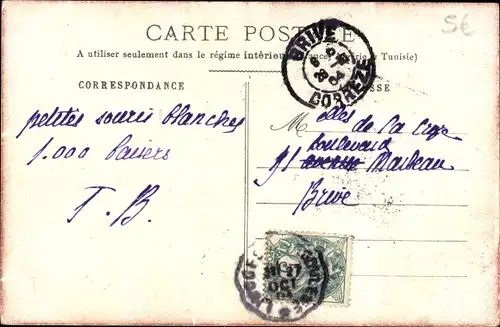 CARTE POSTALE
A utiliser seulement dans le régime intérieur (France, Algérie & Tunisie)
CORRESPONDANCE
ADRESSE
BRIVE
CORRÈZE
5€
petites souris blanches
1.000 baisers
T. B.
Melles de La
boulevard
91 avenue
Brive